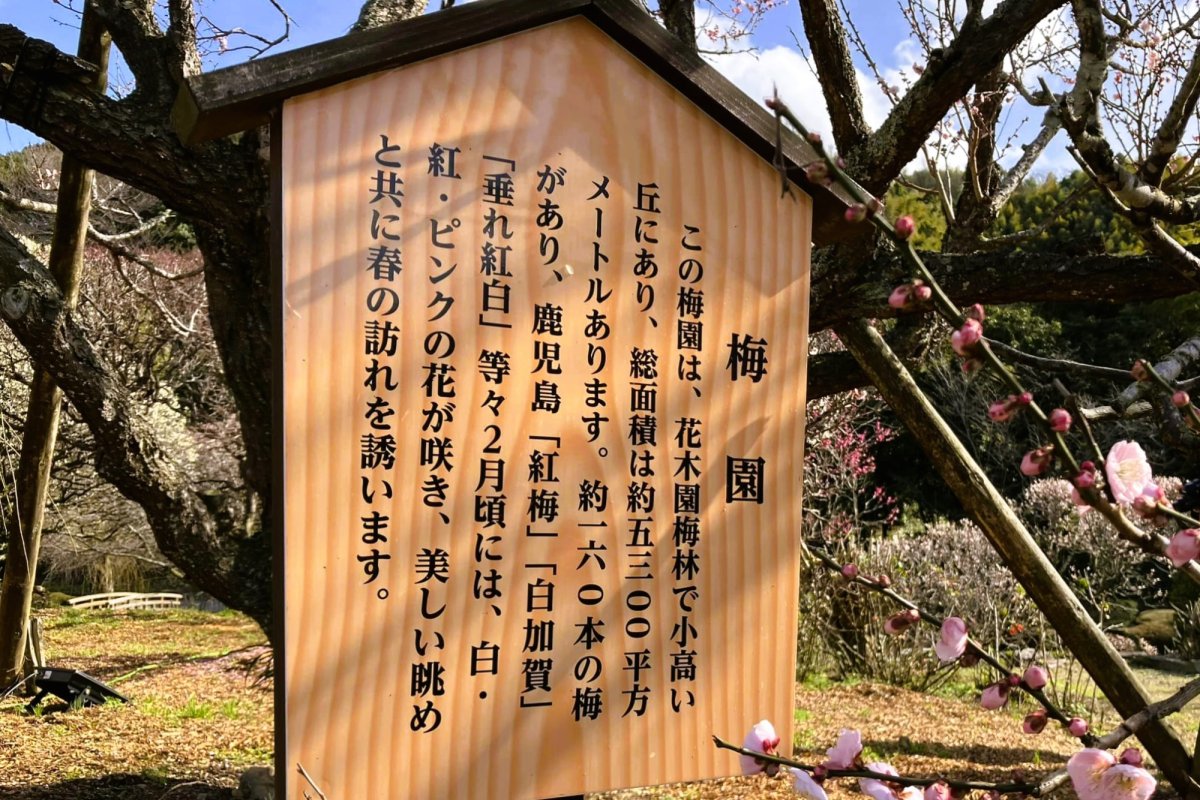 梅園
この梅園は、花木園梅林で小高い
丘にあり、総面積は約五三〇〇平方
メートルあります。約一六〇本の梅
があり、鹿児島「紅梅」「白加賀」
「垂れ紅白」等々2月頃には、白・
紅・ピンクの花が咲き、美しい眺め
と共に春の訪れを誘います。